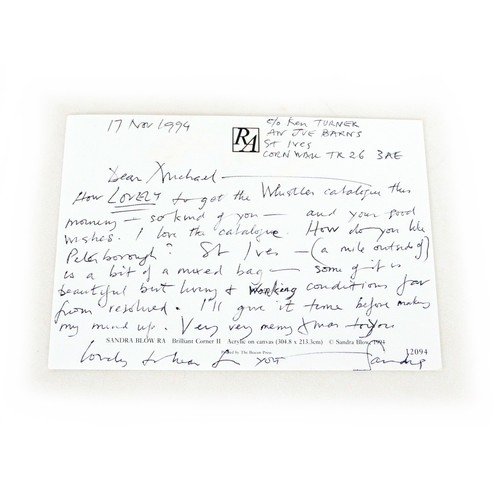 17 Nov 1994
RA
c/o Ken TURNER
AN JUE BARNS
St Ives
CORNWALL TR26 3AE
Dear Michael —
How LOVELY to get the Whistler catalogue this
morning — so kind of you — and your good
wishes. I love the catalogue. How do you like
Peterborough? St Ives — (a mile outside of)
is a bit of a mixed bag — some of it is
beautiful but living & working conditions far
from resolved. I'll give it time before making
my mind up. Very very merry Xmas to you
SANDRA BLOW RA Brilliant Corner II Acrylic on canvas (304.8 x 213.3cm) © Sandra Blow, 1994
Printed by The Beacon Press
12094
lovely to hear of you — Sandra